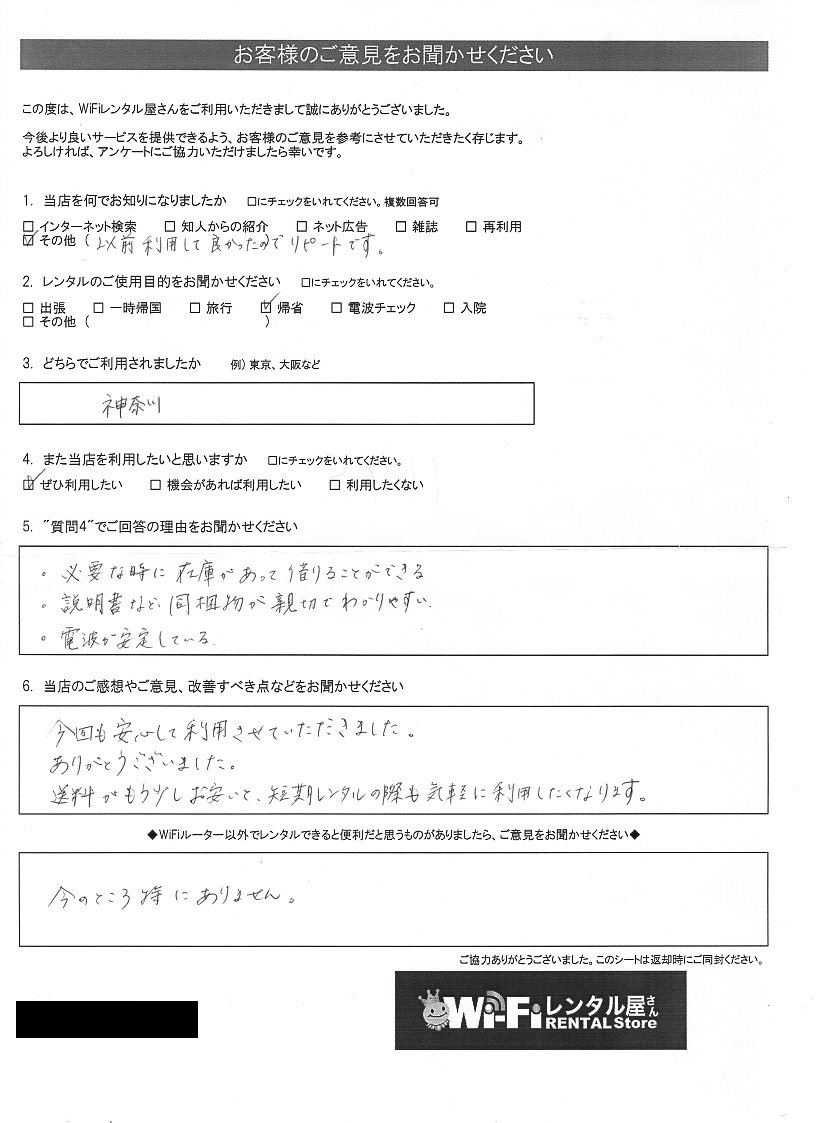 お客様のご意見をお聞かせください
この度は、WiFiレンタル屋さんをご利用いただきまして誠にありがとうございました。
今後より良いサービスを提供できるよう、お客様のご意見を参考にさせていただきたく存じます。
よろしければ、アンケートにご協力いただけましたら幸いです。
1. 当店を何でお知りになりましたか □にチェックをいれてください。複数回答可
□ インターネット検索 □ 知人からの紹介 □ ネット広告 □ 雑誌 □ 再利用
☑ その他 ( 以前利用して良かったのでリピートです。
2. レンタルのご使用目的をお聞かせください □にチェックをいれてください。
□ 出張 □ 一時帰国 □ 旅行 ☑ 帰省 □ 電波チェック □ 入院
□ その他 ( )
3. どちらでご利用されましたか 例) 東京、大阪など
神奈川
4. また当店を利用したいと思いますか □にチェックをいれてください。
☑ ぜひ利用したい □ 機会があれば利用したい □ 利用したくない
5. "質問4"でご回答の理由をお聞かせください
。必要な時に在庫があって借りることができる
。説明書など、同梱物が親切でわかりやすい.
。電波が安定している.
6. 当店のご感想やご意見、改善すべき点などをお聞かせください
今回も安心して利用させていただきました。
ありがとうございました。
送料がもう少しお安いと、短期レンタルの際も気軽に利用したくなります。
◆WiFiルーター以外でレンタルできると便利だと思うものがありましたら、ご意見をお聞かせください◆
今のところ特にありません。
ご協力ありがとうございました。このシートは返却時にご同封ください。
Wi-Fiレンタル屋さん
RENTAL Store